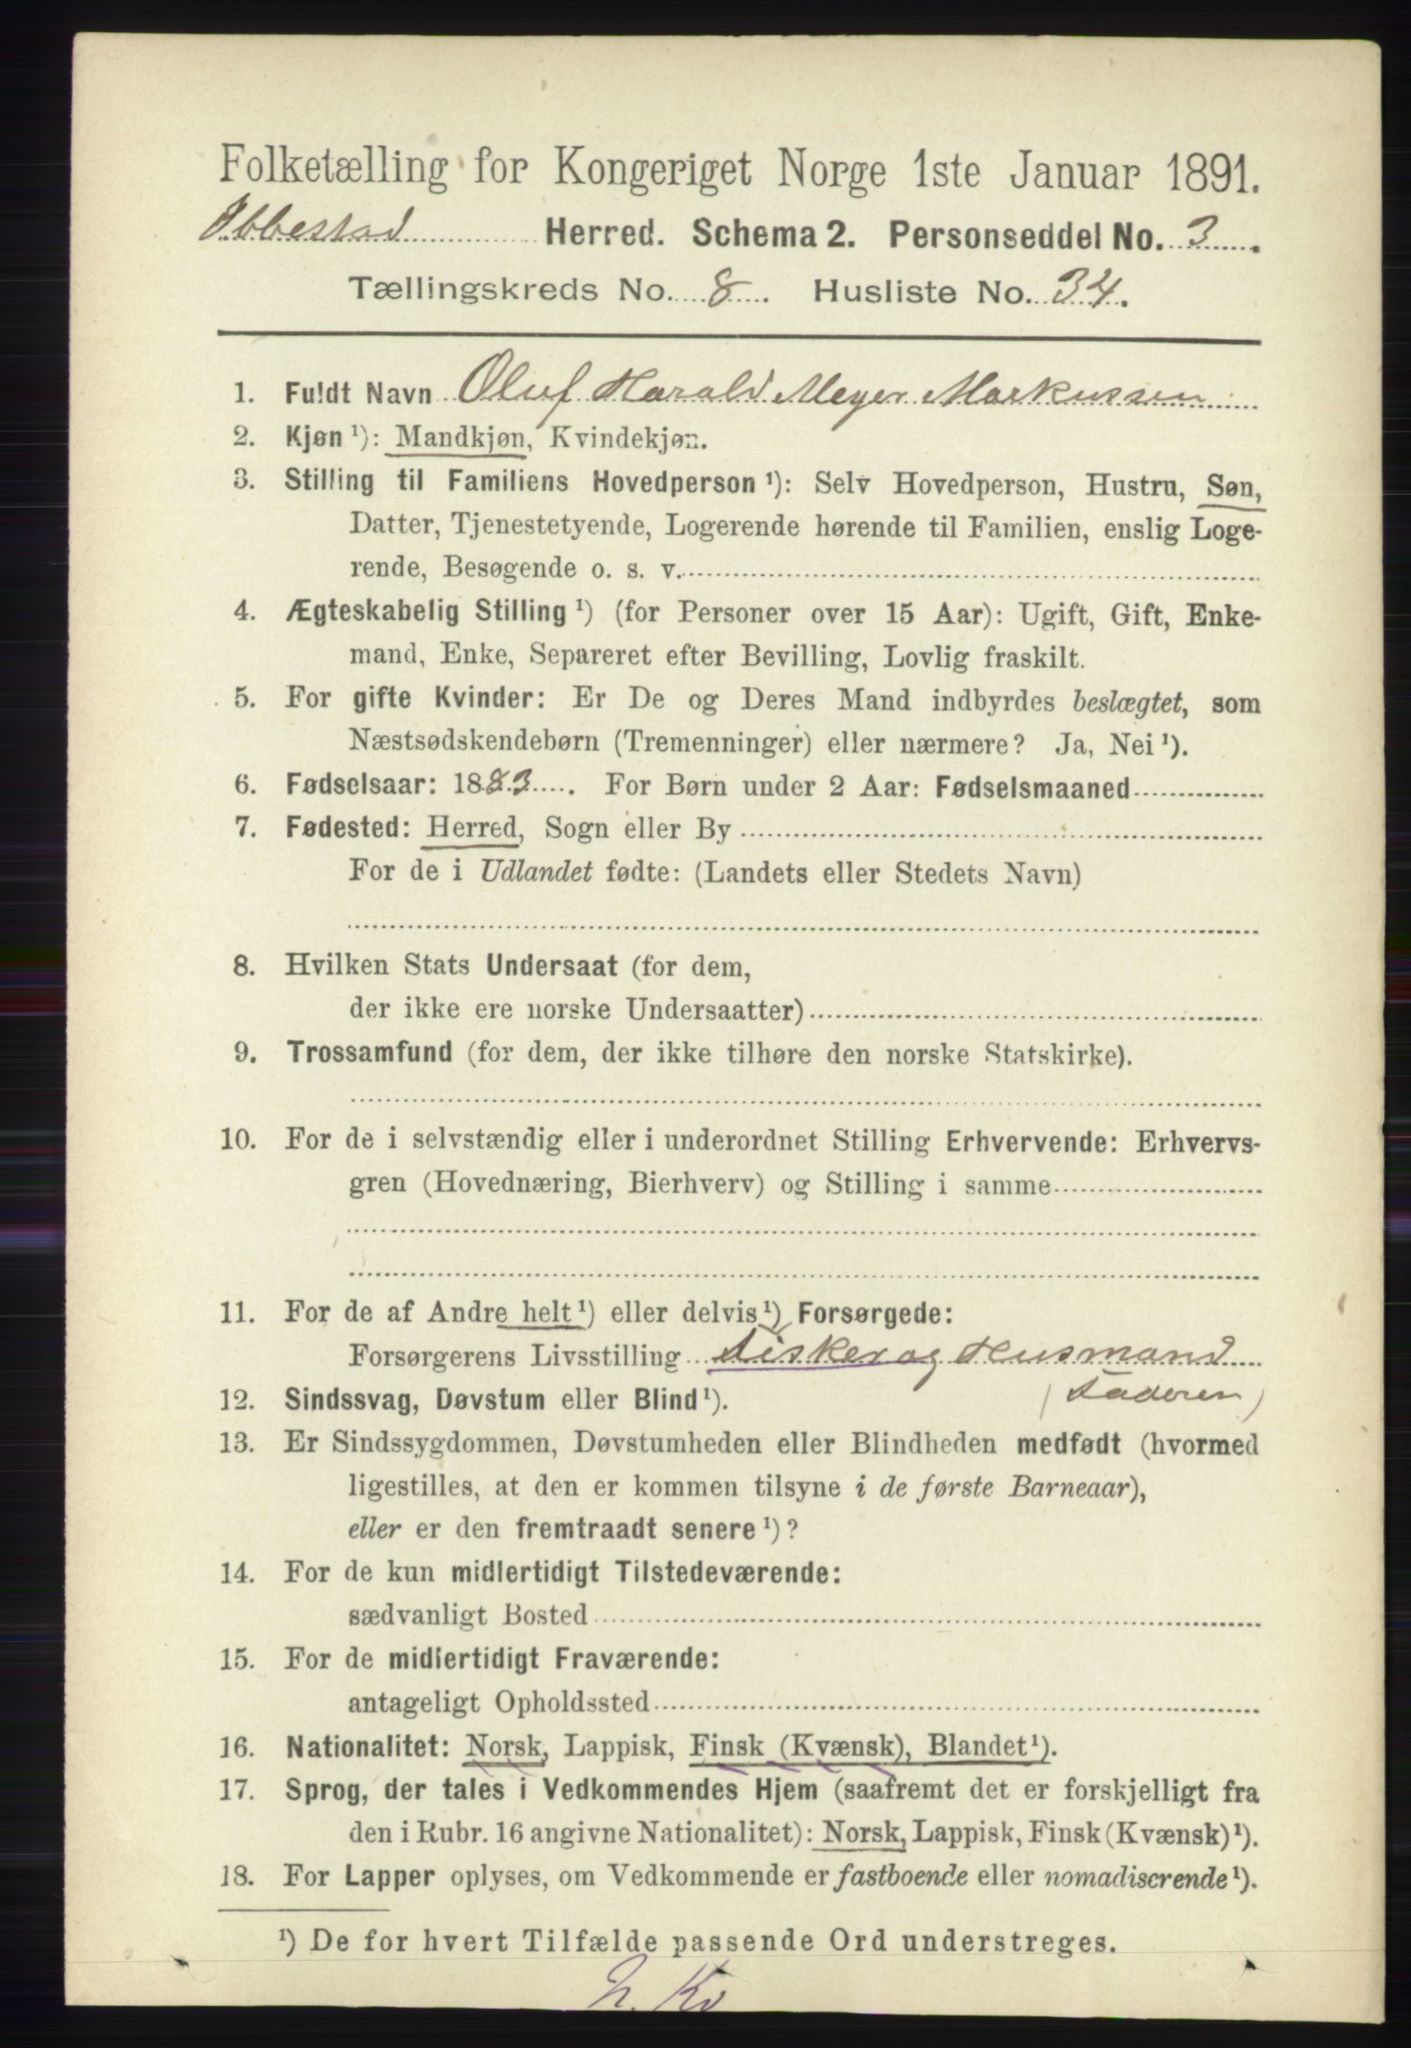 Folketælling for Kongeriget Norge 1ste Januar 1891.
Ibbestad Herred. Schema 2. Personseddel No. 3.
Tællingskreds No. 8. Husliste No. 34.
1. Fuldt Navn Oluf Harald Meyer Markussen
2. Kjøn ¹): Mandkjøn, Kvindekjøn.
3. Stilling til Familiens Hovedperson ¹): Selv Hovedperson, Hustru, Søn,
Datter, Tjenestetyende, Logerende hørende til Familien, enslig Loge-
rende, Besøgende o. s. v.
4. Ægteskabelig Stilling ¹) (for Personer over 15 Aar): Ugift, Gift, Enke-
mand, Enke, Separeret efter Bevilling, Lovlig fraskilt.
5. For gifte Kvinder: Er De og Deres Mand indbyrdes beslægtet, som
Næstsødskendebørn (Tremenninger) eller nærmere? Ja, Nei ¹).
6. Fødselsaar: 1883. For Børn under 2 Aar: Fødselsmaaned
7. Fødested: Herred, Sogn eller By
For de i Udlandet fødte: (Landets eller Stedets Navn)
8. Hvilken Stats Undersaat (for dem,
der ikke ere norske Undersaatter)
9. Trossamfund (for dem, der ikke tilhøre den norske Statskirke).
10. For de i selvstændig eller i underordnet Stilling Erhvervende: Erhvervs-
gren (Hovednæring, Bierhverv) og Stilling i samme
11. For de af Andre helt ¹) eller delvis ¹) Forsørgede:
Forsørgerens Livsstilling Fisker og Husmand
(Faderen)
12. Sindssvag, Døvstum eller Blind ¹).
13. Er Sindssygdommen, Døvstumheden eller Blindheden medfødt (hvormed
ligestilles, at den er kommen tilsyne i de første Barneaar),
eller er den fremtraadt senere ¹)?
14. For de kun midlertidigt Tilstedeværende:
sædvanligt Bosted
15. For de midlertidigt Fraværende:
antageligt Opholdssted
16. Nationalitet: Norsk, Lappisk, Finsk (Kvænsk), Blandet ¹).
17. Sprog, der tales i Vedkommendes Hjem (saafremt det er forskjelligt fra
den i Rubr. 16 angivne Nationalitet): Norsk, Lappisk, Finsk (Kvænsk) ¹).
18. For Lapper oplyses, om Vedkommende er fastboende eller nomadiscrende ¹).
¹) De for hvert Tilfælde passende Ord understreges.
N. Kv